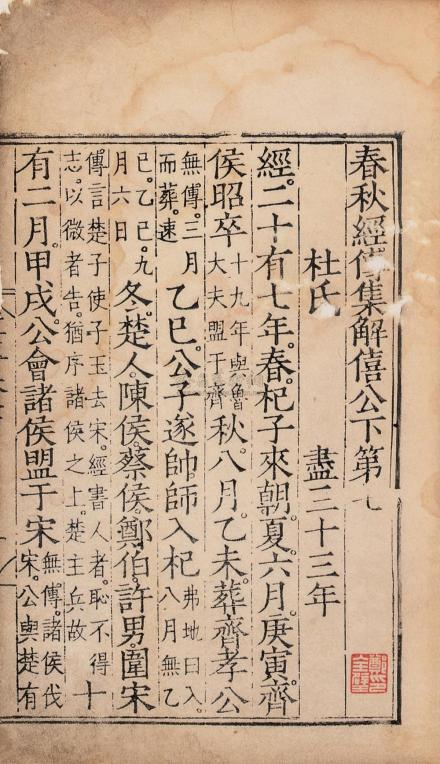 春秋經傳集解僖公下第七
杜氏 盡三十三年
經。二十有七年。春。杞子來朝。夏。六月。庚寅。齊
侯昭卒十九年與魯大夫盟于齊秋。八月。乙未。葬齊孝公
無傳。三月而葬。速乙巳。公子遂帥師入杞弗地曰入。八月無乙
巳。乙巳。九月六日冬。楚人。陳侯。蔡侯。鄭伯。許男。圍宋
傳言楚子使子玉去宋。經書人者。恥不得志。以微者告。猶序諸侯之上。楚主兵故十
有二月。甲戌。公會諸侯盟于宋無傳。諸侯伐宋。公與楚有